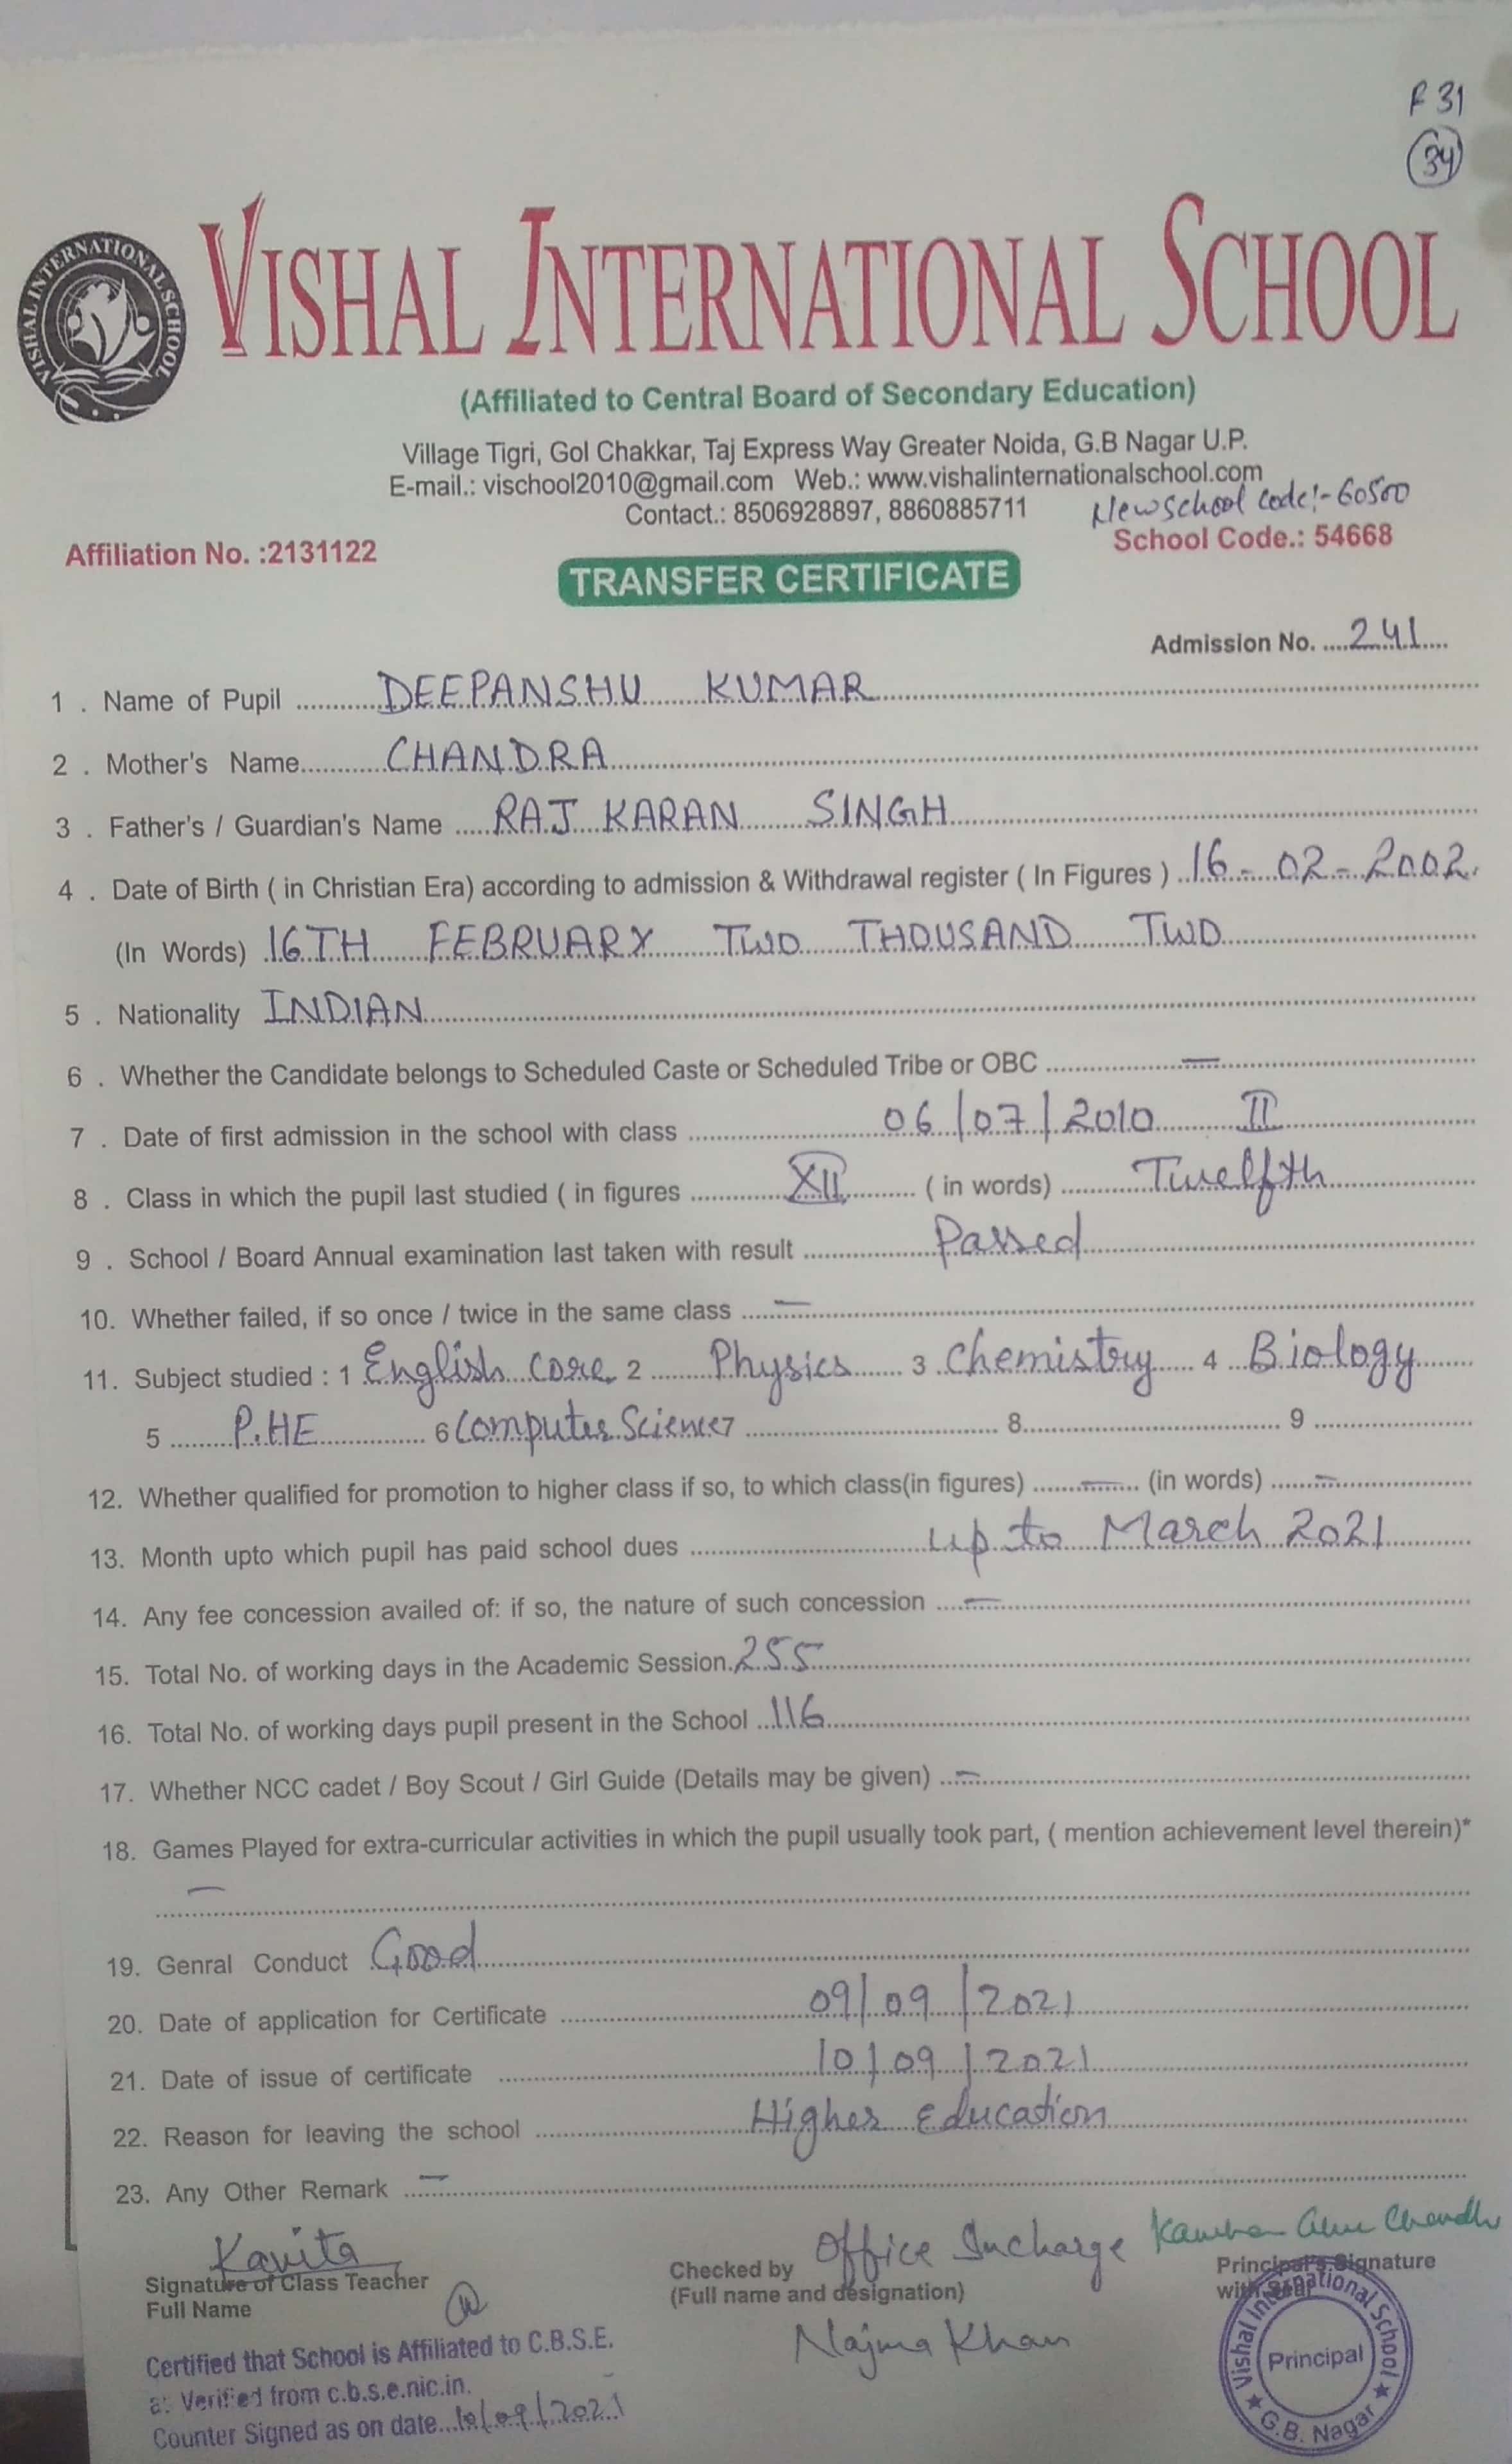 F 31
34
VISHAL INTERNATIONAL SCHOOL
VISHAL INTERNATIONAL SCHOOL
(Affiliated to Central Board of Secondary Education)
Village Tigri, Gol Chakkar, Taj Express Way Greater Noida, G.B Nagar U.P.
E-mail.: vischool2010@gmail.com Web.: www.vishalinternationalschool.com
Contact.: 8506928897, 8860885711 New School Code:- 60500
Affiliation No. :2131122 School Code.: 54668
TRANSFER CERTIFICATE
Admission No. ....241....
1 . Name of Pupil ............DEEPANSHU KUMAR............
2 . Mother's Name............CHANDRA............
3 . Father's / Guardian's Name .....RAJ KARAN SINGH............
4 . Date of Birth ( in Christian Era) according to admission & Withdrawal register ( In Figures ) ..16-02-2002.
(In Words) 16TH FEBRUARY TWO THOUSAND TWO............
5 . Nationality INDIAN............
6 . Whether the Candidate belongs to Scheduled Caste or Scheduled Tribe or OBC ............—............
7 . Date of first admission in the school with class ............06/07/2010 II............
8 . Class in which the pupil last studied ( in figures ............XII............ ( in words) ............Twelfth............
9 . School / Board Annual examination last taken with result ............Passed............
10. Whether failed, if so once / twice in the same class .....—............
11. Subject studied : 1 English Core 2 .........Physics....... 3 ..Chemistry..... 4 ...Biology.......
5 .........P.HE............... 6 Computer Science 7 ............ 8............ 9 ............
12. Whether qualified for promotion to higher class if so, to which class(in figures) .......—...... (in words) ......—............
13. Month upto which pupil has paid school dues ............up to March 2021............
14. Any fee concession availed of: if so, the nature of such concession ....—............
15. Total No. of working days in the Academic Session.255............
16. Total No. of working days pupil present in the School ...116............
17. Whether NCC cadet / Boy Scout / Girl Guide (Details may be given) ..—............
18. Games Played for extra-curricular activities in which the pupil usually took part, ( mention achievement level therein)*
—............
19. Genral Conduct Good............
20. Date of application for Certificate ............09/09/2021............
21. Date of issue of certificate ............10/09/2021............
22. Reason for leaving the school ............Higher Education............
23. Any Other Remark ..—............
Kavita Office Incharge
Signature of Class Teacher Checked by Principal's Signature
Full Name (Full name and designation) with Seal
Najma Khan
Certified that School is Affiliated to C.B.S.E.
as Verified from c.b.s.e.nic.in.
Counter Signed as on date...10/09/2021
Vishal International School
Principal
★ G.B. Nagar ★